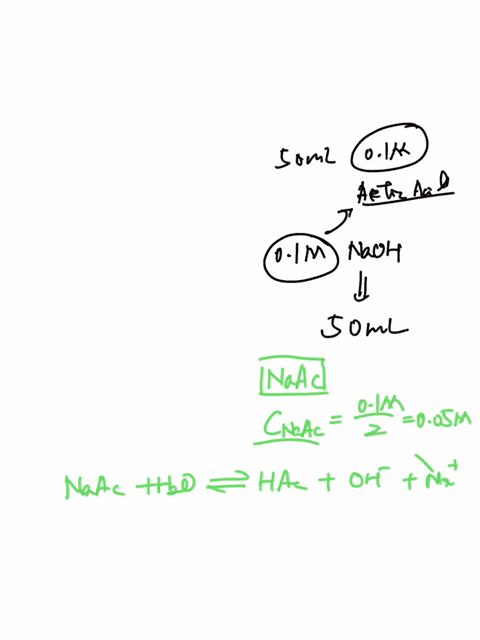 50mL 0.1M
Acetic Acid
0.1M NaOH
⇓
50mL
NaAc
C_NaAc = 0.1M/2 = 0.05M
NaAc + H2O ⇌ HAc + OH⁻ + Na⁺